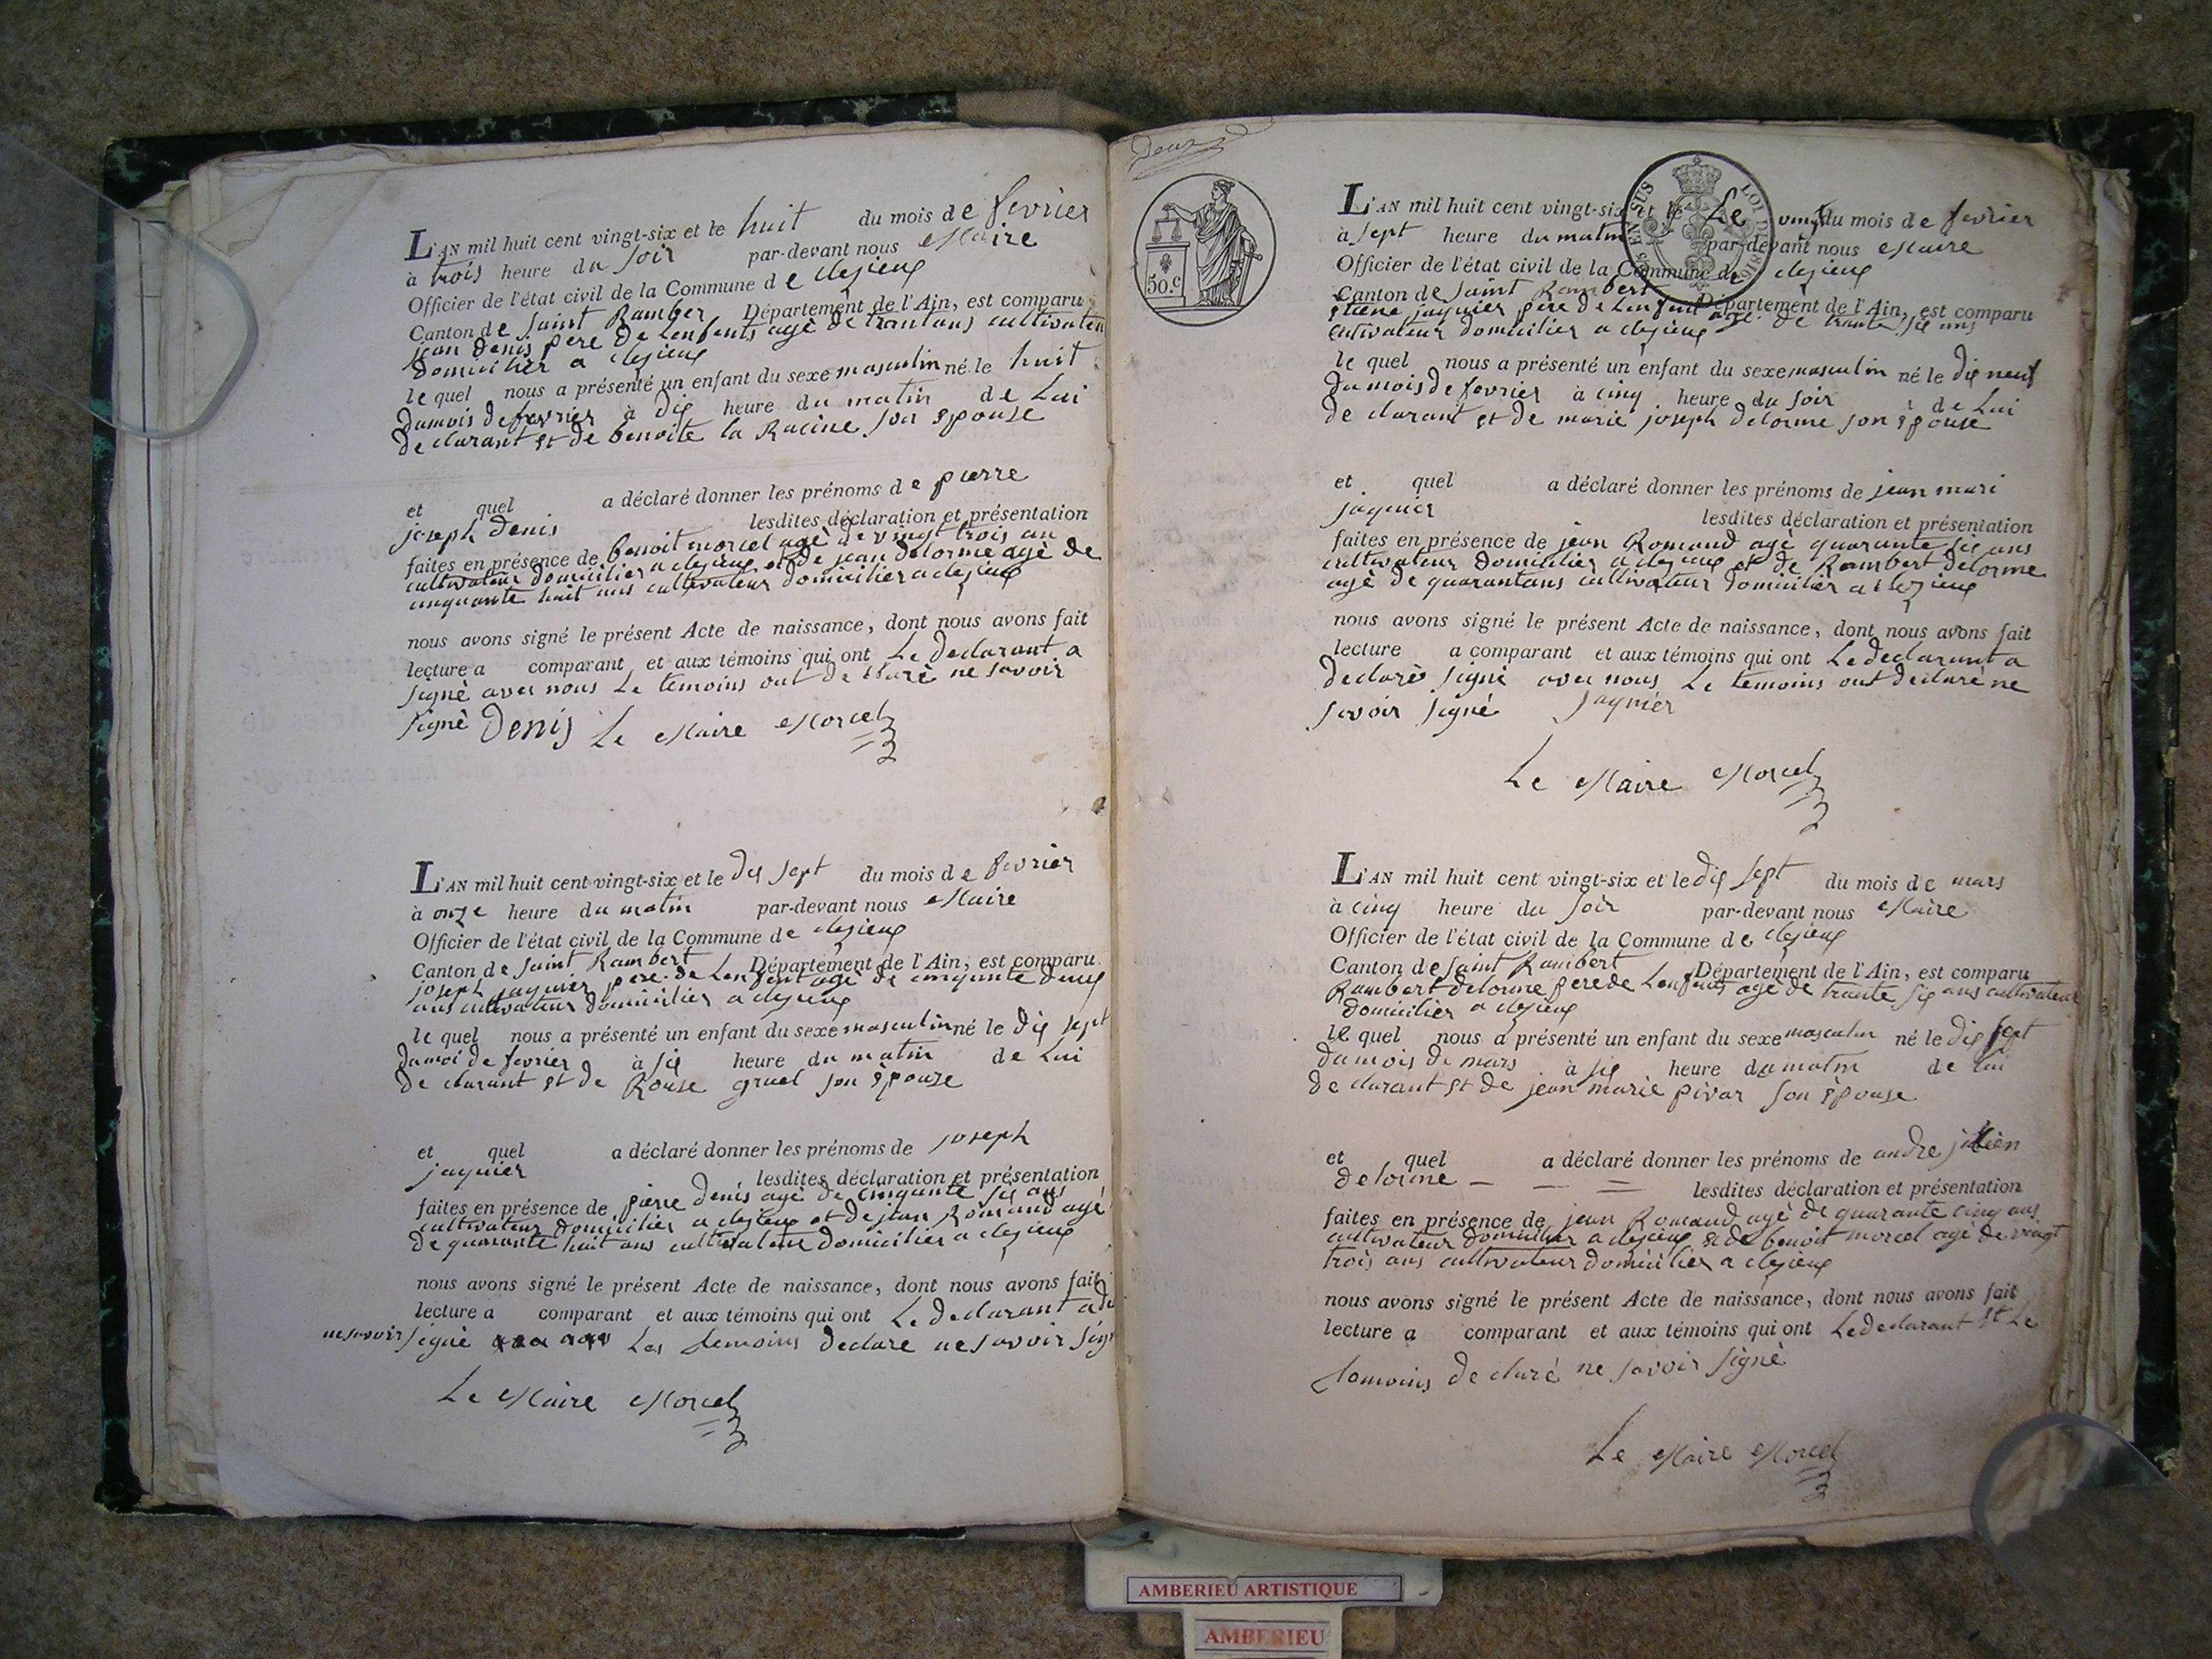 L'AN mil huit cent vingt-six et le huit du mois de fevrier
à trois heure du soir par-devant nous Maire
Officier de l'état civil de la Commune de clezieux
Canton de saint Ramber Département de l'Ain, est comparu
jean denis pere de Lenfents agé de trantans cultivateu
domicilier a clezieux
le quel nous a présenté un enfant du sexe masculin né le huit
du mois de fevrier à dix heure du matin de Lui
declarant et de benoite la Racine son épouse
et quel a déclaré donner les prénoms de pierre
joseph denis lesdites déclaration et présentation
faites en présence de benoit morcel agè de vingt trois an
cultivateur domicilier a clezieux et de jean delorme agè de
cinquante huit ans cultivateur domicilier a clezieux
nous avons signé le présent Acte de naissance, dont nous avons fait
lecture a comparant et aux témoins qui ont Le declarant a
signè avec nous Le temoins out declarè ne savoir
signè Denis Le Maire Morcel
L'AN mil huit cent vingt-six et le dix sept du mois de fevrier
à onze heure du matin par-devant nous Maire
Officier de l'état civil de la Commune de clezieux
Canton de saint Rambert Département de l'Ain, est comparu
joseph jaquier pere de Lenfent agé de cinquante deux
ans cultivateur domicilier a clezieux
le quel nous a présenté un enfant du sexe masculin né le dix sept
du moi de fevrier à six heure du matin de Lui
declarant et de Rouse gruel son èpouse
et quel a déclaré donner les prénoms de joseph
jaquier lesdites déclaration et présentation
faites en présence de pierre denis agé de cinquante six ans
cultivateur domicilier a clezieux et de jean Romand agé
de quarante huit ans cultivateur domicilier a clezieux
nous avons signé le présent Acte de naissance, dont nous avons fait
lecture a comparant et aux témoins qui ont Le declarant a de
ne savoir signè Les temoins declare ne savoir sign
Le Maire Morcel
Deux
50.c
EN SUS LOI DE 1816
L'AN mil huit cent vingt-six et le Le vingt du mois de fevrier
à sept heure du matin par-devant nous Maire
Officier de l'état civil de la Commune de clezieux
Canton de saint Rambert Département de l'Ain, est comparu
etiene jaquier pere de Lenfent agé de trante six ans
cultivateur domicilier a clezieux
le quel nous a présenté un enfant du sexe masculin né le dix neuf
du mois de fevrier à cinq heure du soir de Lui
declarant et de marie joseph delorme son épouse
et quel a déclaré donner les prénoms de jean mari
jaquier lesdites déclaration et présentation
faites en présence de jean Romand agè quarante six ans
cultivateur domicilier a clezieux et de Rambert delorme
agè de quarantans cultivateur domicilier a clezieux
nous avons signé le présent Acte de naissance, dont nous avons fait
lecture a comparant et aux témoins qui ont Le declarant a
declarè signè avec nous Le temoins out declaré ne
savoir signé jaquier
Le Maire Morcel
L'AN mil huit cent vingt-six et le dix sept du mois de mars
à cinq heure du soir par-devant nous Maire
Officier de l'état civil de la Commune de clezieux
Canton de saint Rambert Département de l'Ain, est comparu
Rambert delorme pere de Lenfents agé de trante six ans cultivateur
domicilier a clezieux
le quel nous a présenté un enfant du sexe masculin né le dix sept
du mois de mars à six heure du matin de Lui
declarant et de jean marie pivar son épouse
et quel a déclaré donner les prénoms de andre
delorme lesdites déclaration et présentation
faites en présence de jean Romand agè de quarante cinq ans
cultivateur domicilier a clezieux et de benoit morcel agé de vingt
trois ans cultivateur domicilier a clezieux
nous avons signé le présent Acte de naissance, dont nous avons fait
lecture a comparant et aux témoins qui ont Le declarant et Le
temoins declaré ne savoir signè
Le Maire Morcel
AMBERIEU ARTISTIQUE
AMBERIEU